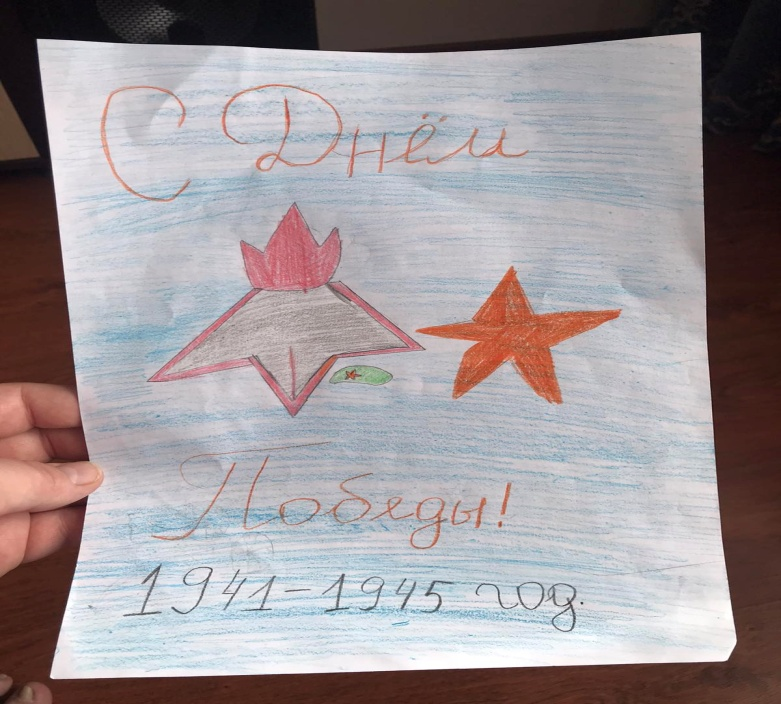 С Днём
Победы!
1941-1945 год.